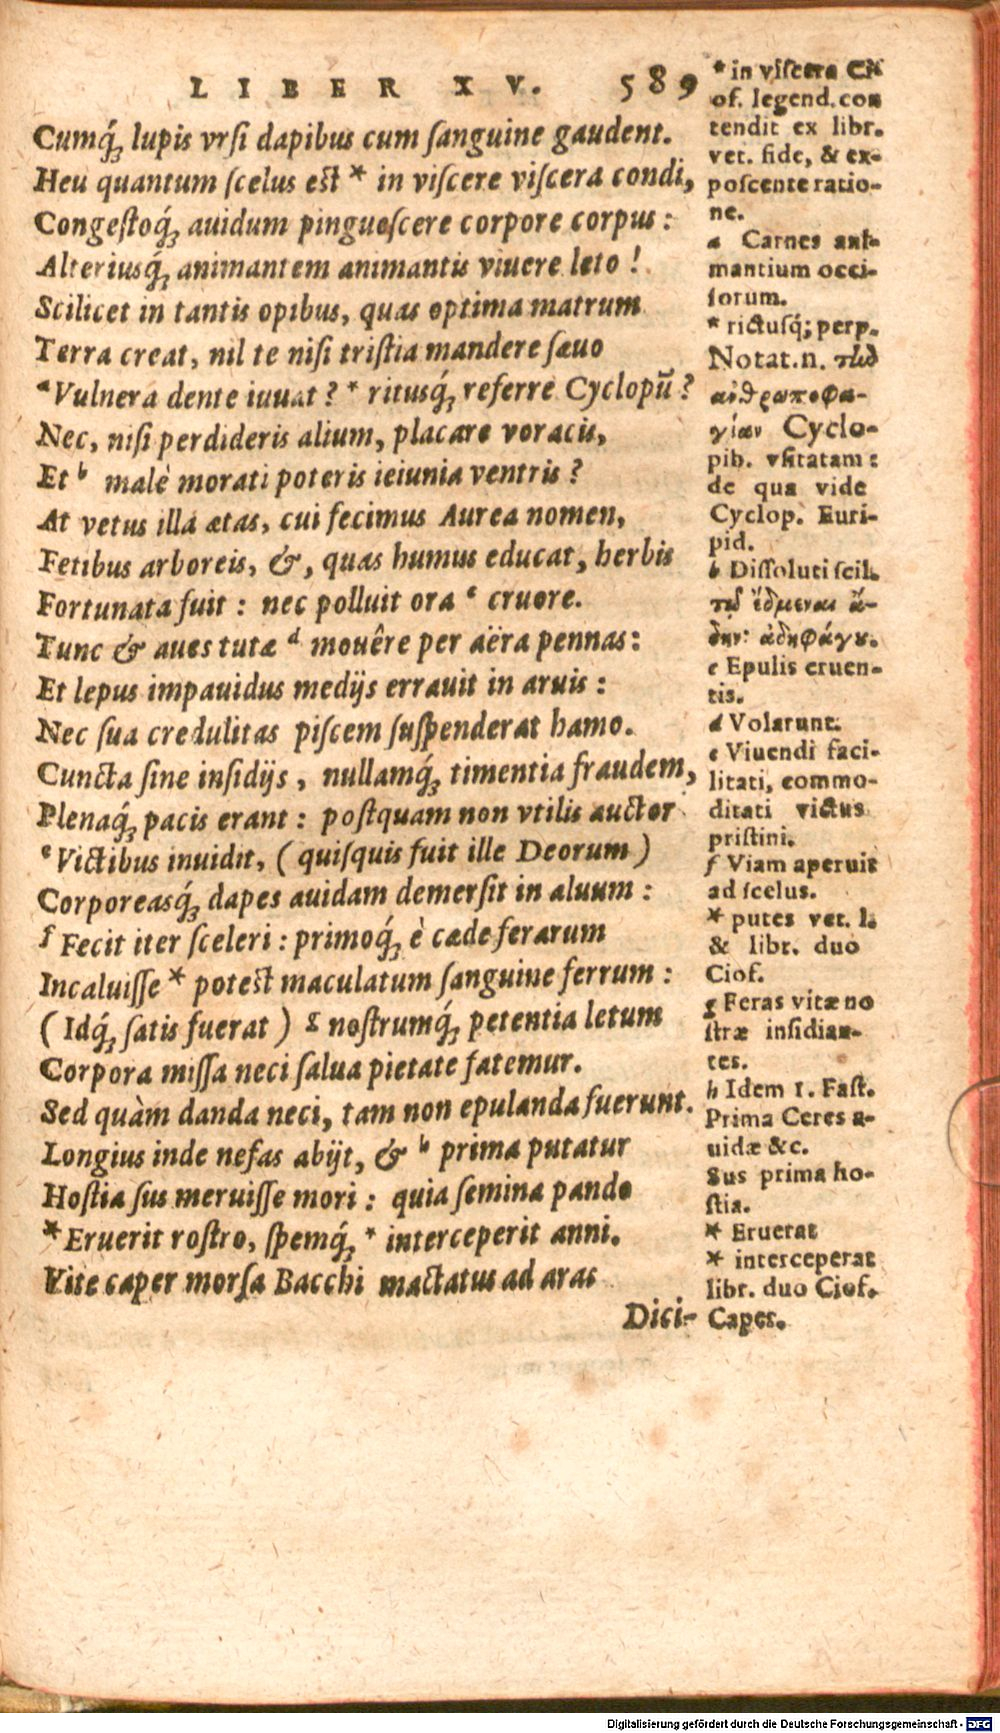 LIBER XV. 589
Cumq́; lupis vrsi dapibus cum sanguine gaudent.
Heu quantum scelus est * in viscere viscera condi,
Congestoq́; auidum pinguescere corpore corpus:
Alteriusq́; animantem animantis viuere leto!
Scilicet in tantis opibus, quas optima matrum
Terra creat, nil te nisi tristia mandere sæuo
a Vulnera dente iuuat? * ritusq́; referre Cyclopũ?
Nec, nisi perdideris alium, placare voracis,
Et b malè morati poteris ieiunia ventris?
At vetus illa ætas, cui fecimus Aurea nomen,
Fetibus arboreis, &, quas humus educat, herbis
Fortunata fuit: nec polluit ora c cruore.
Tunc & aues tutæ d mouêre per aëra pennas:
Et lepus impauidus medijs errauit in aruis:
Nec sua credulitas piscem suspenderat hamo.
Cuncta sine insidijs, nullamq́; timentia fraudem,
Plenaq́; pacis erant: postquam non vtilis auctor
e Victibus inuidit, (quisquis fuit ille Deorum)
Corporeasq́; dapes auidam demersit in aluum:
f Fecit iter sceleri: primoq́; è cæde ferarum
Incaluisse * potest maculatum sanguine ferrum:
(Idq́; satis fuerat) g nostrumq́; petentia letum
Corpora missa neci salua pietate fatemur.
Sed quàm danda neci, tam non epulanda fuerunt.
Longius inde nefas abijt, & h prima putatur
Hostia sus meruisse mori: quia semina pando
* Eruerit rostro, spemq́; * interceperit anni.
Vite caper morsa Bacchi mactatus ad aras
Dici-
* in viscera Ci
of. legend. con
tendit ex libr.
vet. fide, & ex-
poscente ratio-
ne.
a Carnes ani-
mantium occi-
sorum.
* rictusq́; perp.
Notat. n. τὴν
ἀνθρωποφα-
γίαν Cyclo-
pib. vsitatam:
de qua vide
Cyclop. Euri-
pid.
b Dissoluti scil.
τοῦ ἔδμεναι ἄ-
δην: ἀδηφάγου.
c Epulis cruen-
tis.
d Volarunt.
e Viuendi faci-
litati, commo-
ditati victus
pristini.
f Viam aperuit
ad scelus.
* putes vet. l.
& libr. duo
Ciof.
g Feras vitæ no
stræ insidian-
tes.
h Idem 1. Fast.
Prima Ceres a-
uidæ &c.
Sus prima ho-
stia.
* Eruerat
* interceperat
libr. duo Ciof.
Caper.
Digitalisierung gefördert durch die Deutsche Forschungsgemeinschaft - DFG